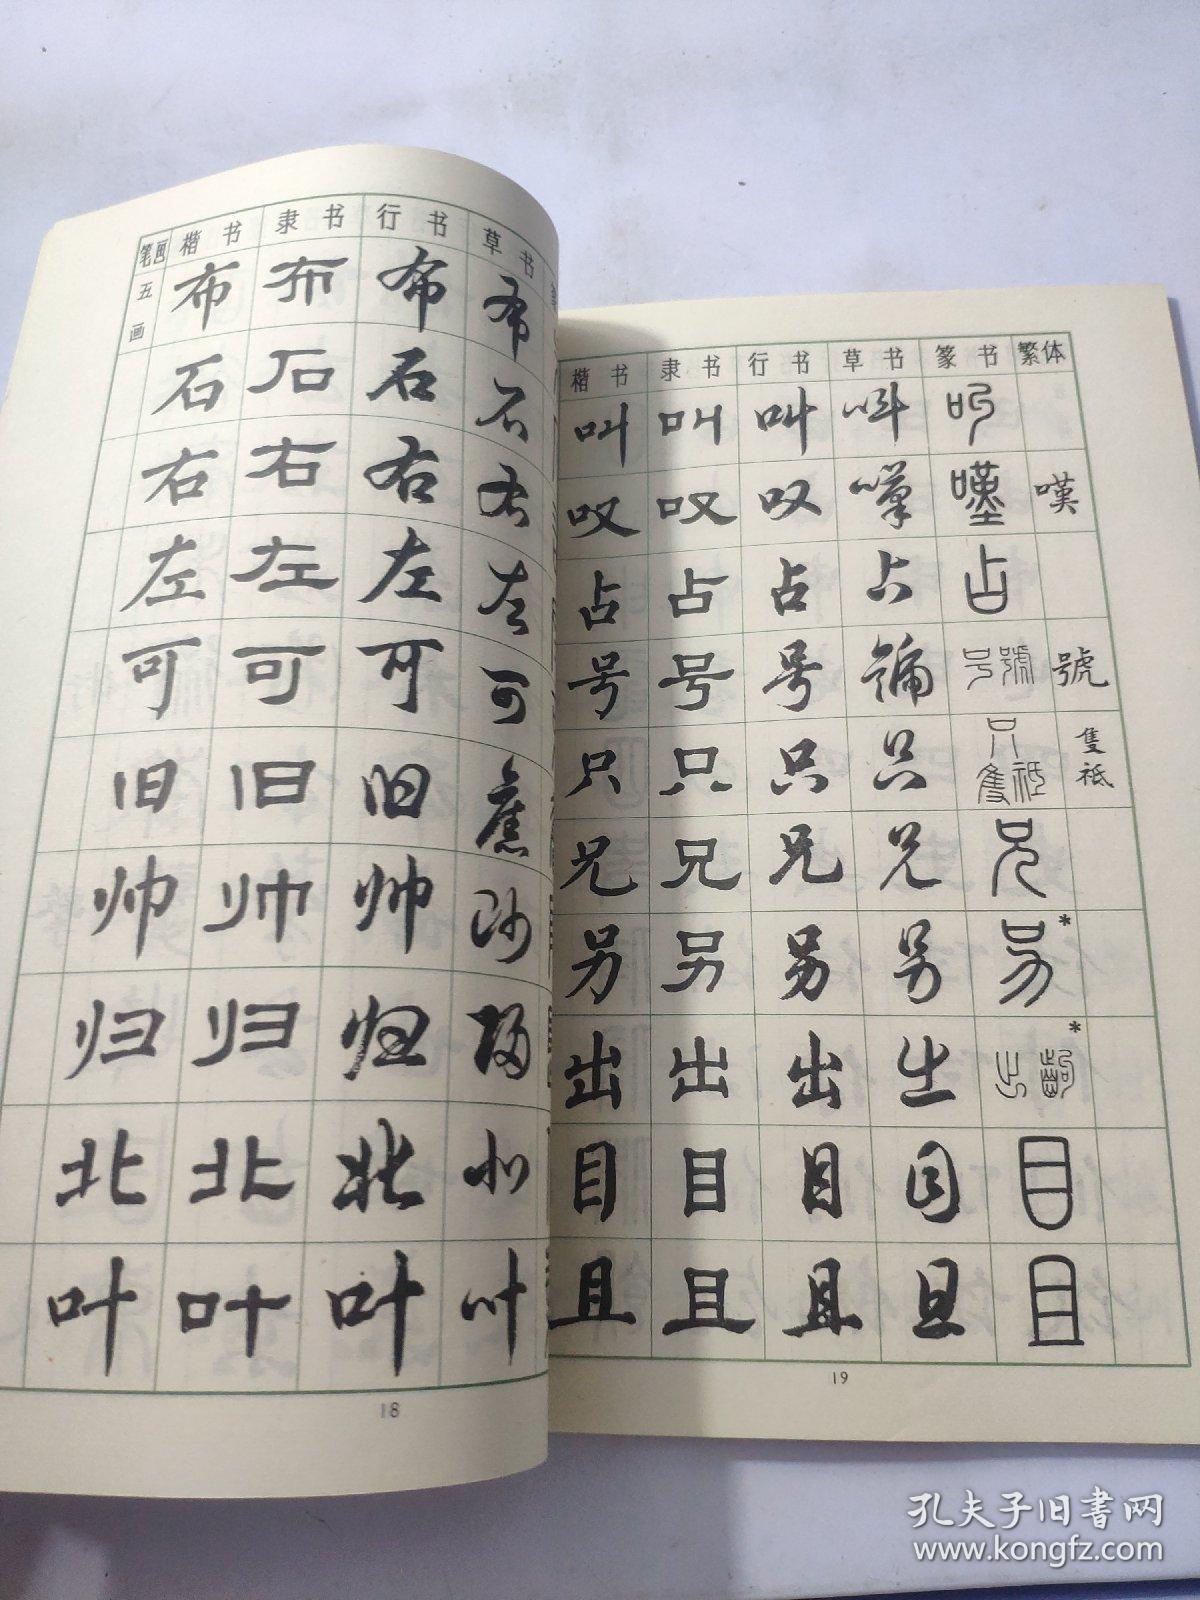 笔画 楷书 隶书 行书 草书
五画 布 布 布 布
石 石 石 石
右 右 右 右
左 左 左 左
可 可 可 可
旧 旧 旧 舊
帅 帅 帅 帥
归 归 归 歸
北 北 北 北
叶 叶 叶 叶
18
楷书 隶书 行书 草书 篆书 繁体
叫 叫 叫 叫 叫
叹 叹 叹 嘆 嘆 嘆
占 占 占 占 占
号 号 号 號 号號 號
只 只 只 只 只隻祗 隻祗
兄 兄 兄 兄 兄
另 另 另 另 另*
出 出 出 出 出齣*
目 目 目 目 目
且 且 且 且 且
19
孔夫子旧书网
www.kongfz.com